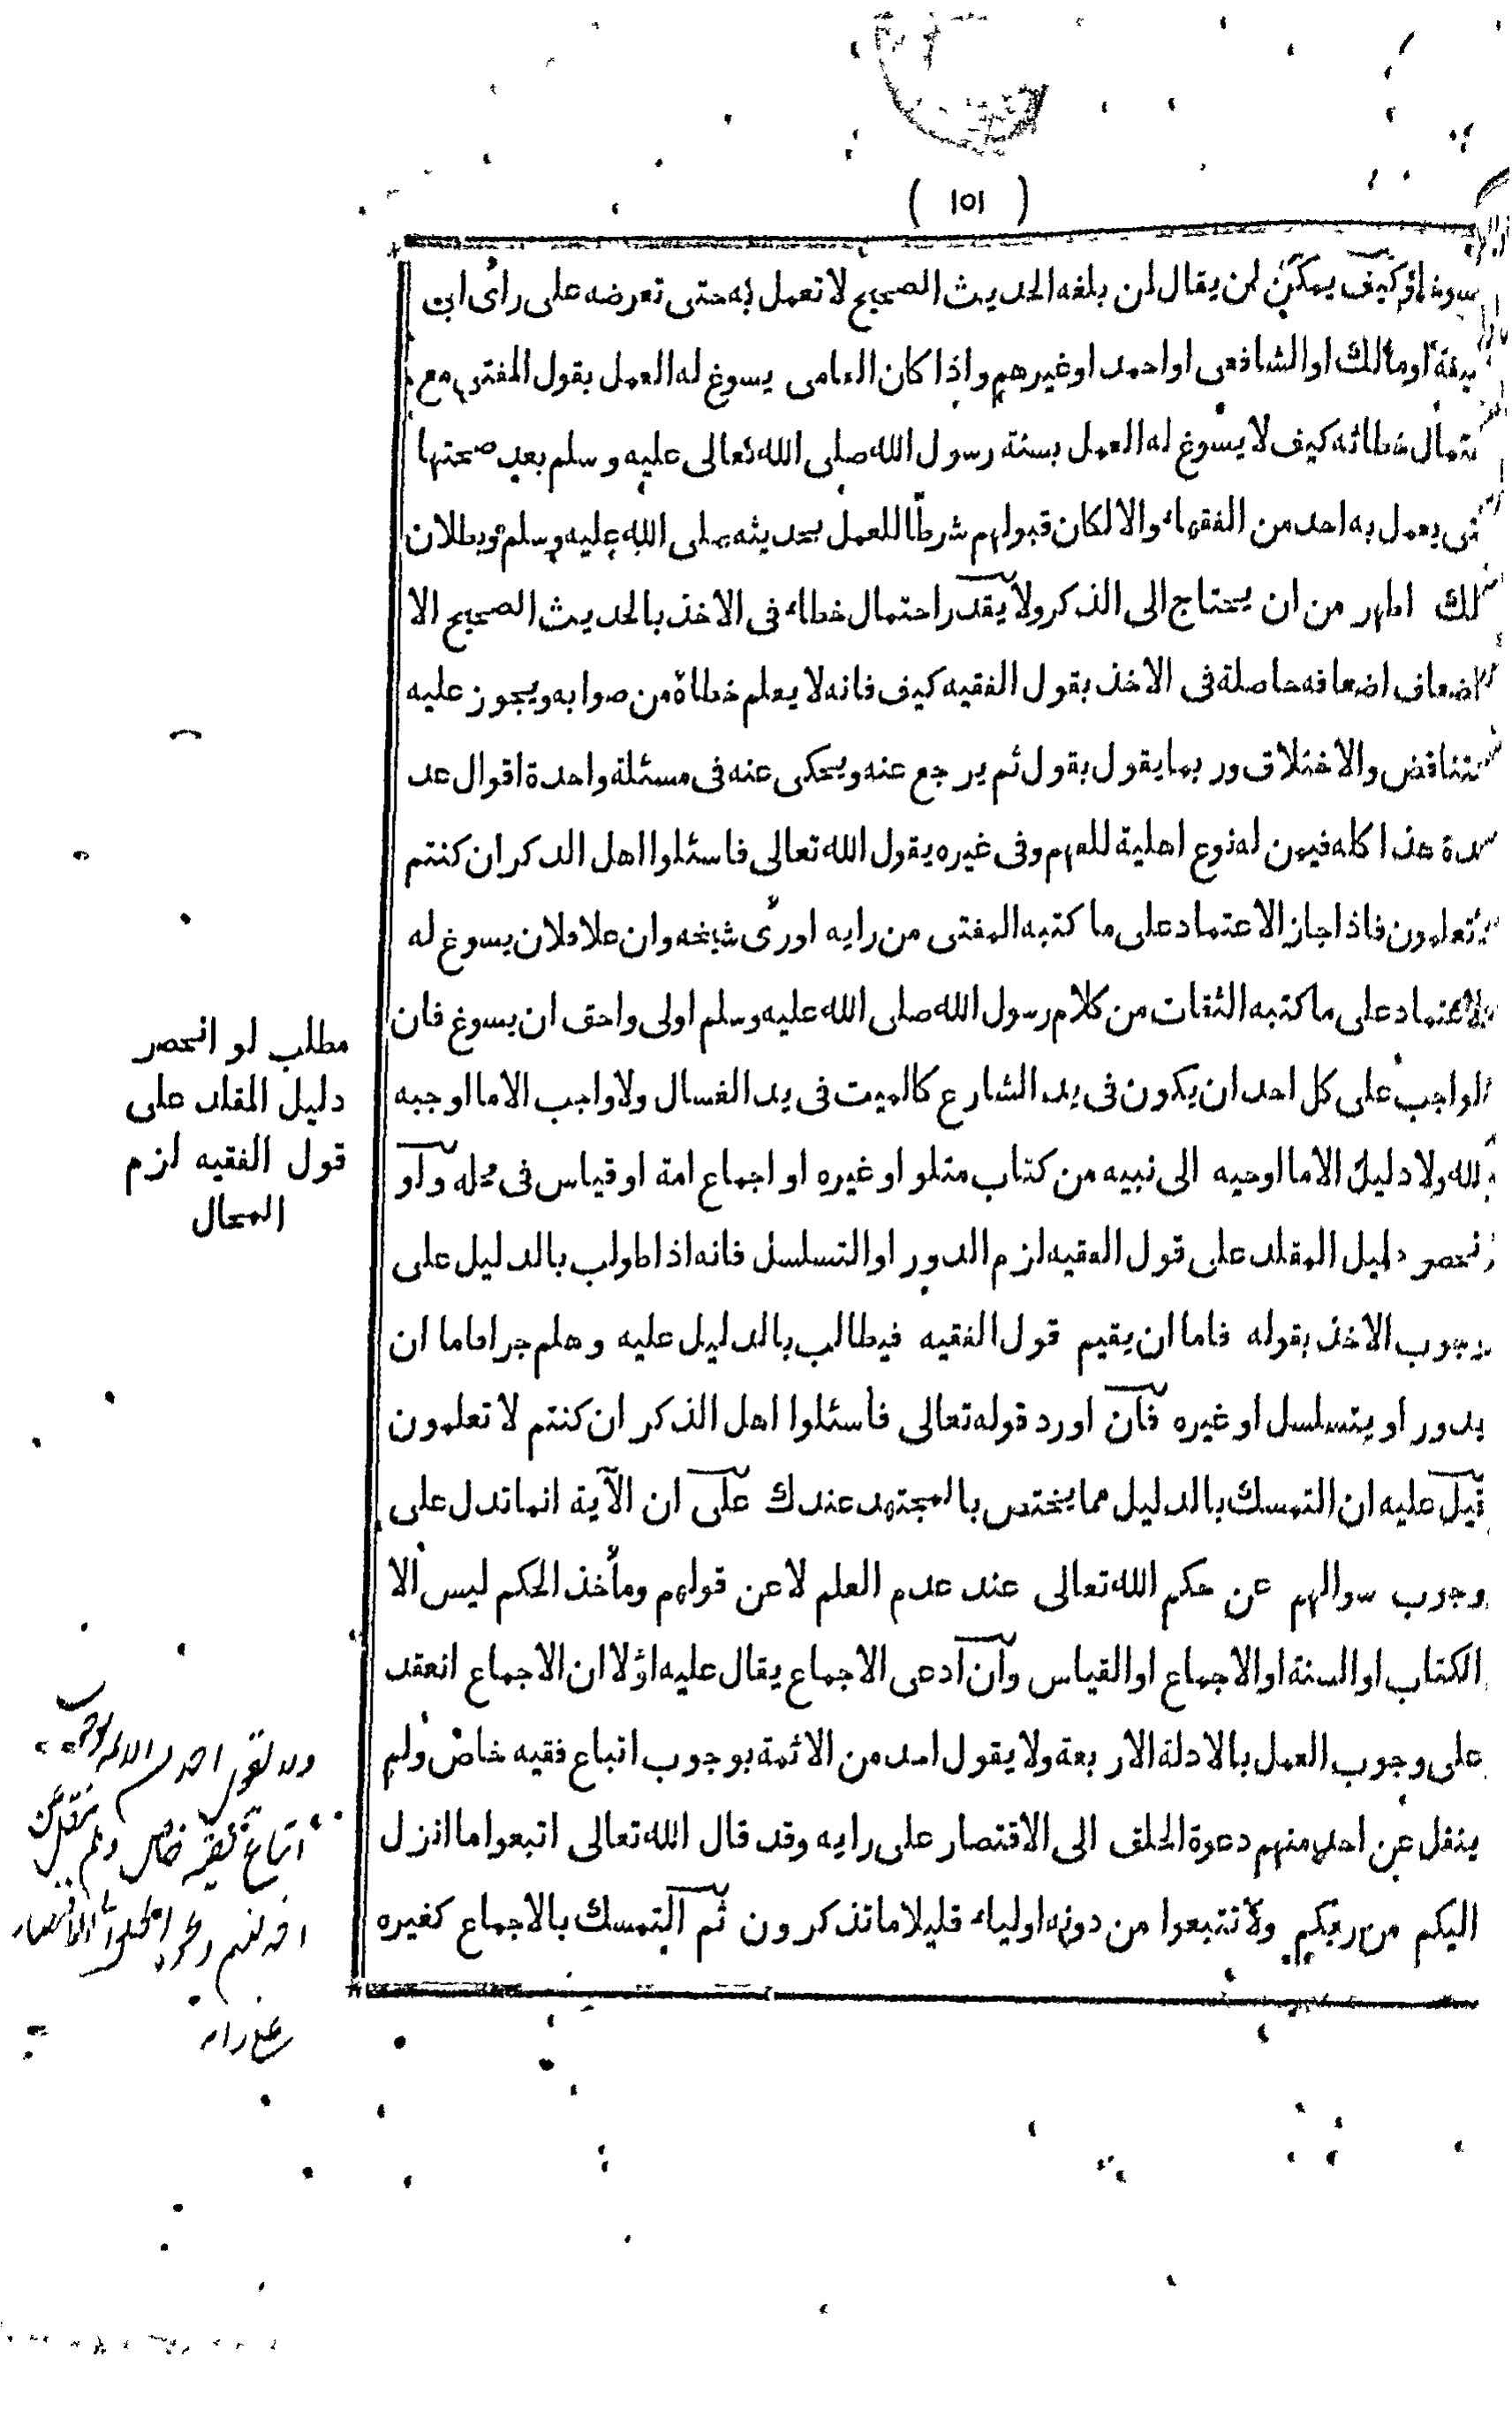 ( ١٥١ )
وكيف يمكن ان يقال لمن بلغه الحديث الصحيح لا تعمل به حتى تعرضه على رأى ابى
اومالك اوالشافعى اواحمد اوغيرهم واذا كان العامى يسوغ له العمل بقول المفتى مع
خطائه كيف لا يسوغ له العمل بسنة رسول الله صلى الله تعالى عليه وسلم بعد صحتها
يعمل به احد من الفقهاء والا لكان قبولهم شرطا للعمل بحديثه صلى الله عليه وسلم وبطلان
اظهر من ان يحتاج الى الذكر ولا يقدر احتمال خطاء فى الاخذ بالحديث الصحيح الا
اضعاف اضعافه حاصلة فى الاخذ بقول الفقيه كيف فانه لا يعلم خطاؤه من صوابه ويجوز عليه
والاختلاق وربما يقول بقول ثم يرجع عنه ويحكى عنه فى مسئلة واحدة اقوال عد
هذا كله فيمن له نوع اهلية للفهم وفى غيره يقول الله تعالى فاسئلوا اهل الذكر ان كنتم
تعلمون فاذا جاز الاعتماد على ما كتبه المفتى من رايه اورى شيخه وان علا فلان يسوغ له
الاعتماد على ما كتبه الثقات من كلام رسول الله صلى الله عليه وسلم اولى واحق ان يسوغ فان
الواجب على كل احد ان يكون فى يد الشارع كالميت فى يد الغسال ولا واجب الا ما اوجبه
الله ولا دليل الا ما اوحيه الى نبيه من كتاب متلو او غيره او اجماع امة او قياس فى محله ولو
انحصر دليل المقلد على قول الفقيه لزم الدور او التسلسل فانه اذا طولب بالدليل على
وجوب الاخذ بقوله فاما ان يقيم قول الفقيه فيطالب بالدليل عليه وهلم جرا فاما ان
يدور او يتسلسل او غيره فان اورد قوله تعالى فاسئلوا اهل الذكر ان كنتم لا تعلمون
قيل عليه ان التمسك بالدليل مما يختص بالمجتهد عندك على ان الآية انما تدل على
وجوب سوالهم عن حكم الله تعالى عند عدم العلم لا عن قولهم ومأخذ الحكم ليس الا
الكتاب او السنة او الاجماع او القياس وان ادعى الاجماع يقال عليه اولا ان الاجماع انعقد
على وجوب العمل بالادلة الاربعة ولا يقول احد من الائمة بوجوب اتباع فقيه خاص ولم
ينقل عن احد منهم دعوة الخلق الى الاقتصار على رايه وقد قال الله تعالى اتبعوا ما انزل
اليكم من ربكم ولا تتبعوا من دونه اولياء قليلا ما تذكرون ثم التمسك بالاجماع كغيره
مطلب لو انحصر
دليل المقلد على
قول الفقيه لزم
المحال
ولا يقول احد من الائمة بوجوب
اتباع فقيه خاص ولم ينقل عن